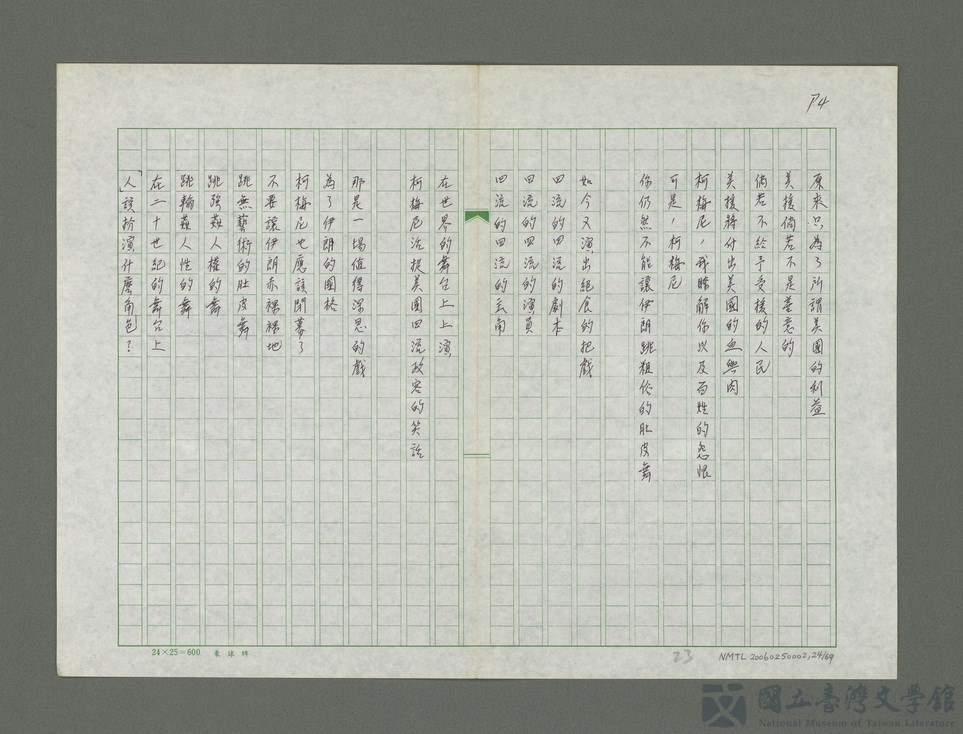 P4
原來只為了所謂美國的利益
美援倘若不是善意的
倘若不給予受援的人民
美援將付出美國的血與肉
柯梅尼，我瞭解你以及百姓的怨恨
可是，柯梅尼
你仍然不能讓伊朗跳粗俗的肚皮舞
如今又演出絕食的把戲
四流的四流的劇本
四流的四流的演員
四流的四流的主角
在世界的舞台上上演
柯梅尼沿提美國四流政客的笑話
那是一場值得深思的戲
為了伊朗的國格
柯梅尼也應該閉幕了
不要讓伊朗赤裸裸地
跳無藝術的肚皮舞
跳強姦人權的舞
跳輪姦人性的舞
在二十世紀的舞台上
「人」該扮演什麼角色？
24×25=600
23
NMTL 20060250002,24/69
國立臺灣文學館
National Museum of Taiwan Literature